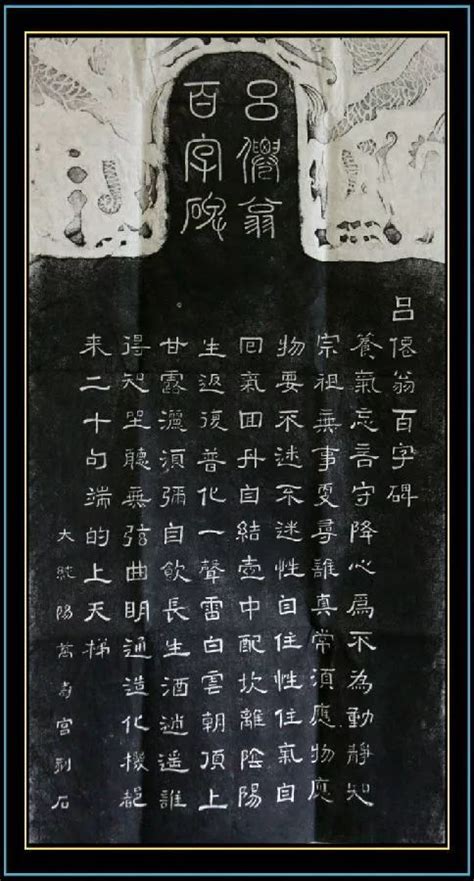 呂僊翁
百字碑
呂僊翁百字碑
養氣忘言守降心爲不為動靜知
宗祖無事更尋誰真常須應物應
物要不迷不迷性自住性住氣自
回氣回丹自結壺中配坎離陰陽
生返復普化一聲雷白雲朝頂上
甘露灑須彌自飲長生酒逍遙誰
得知坐聽無弦曲明通造化機都
来二十句端的上天梯
大純陽萬壽宮刻石